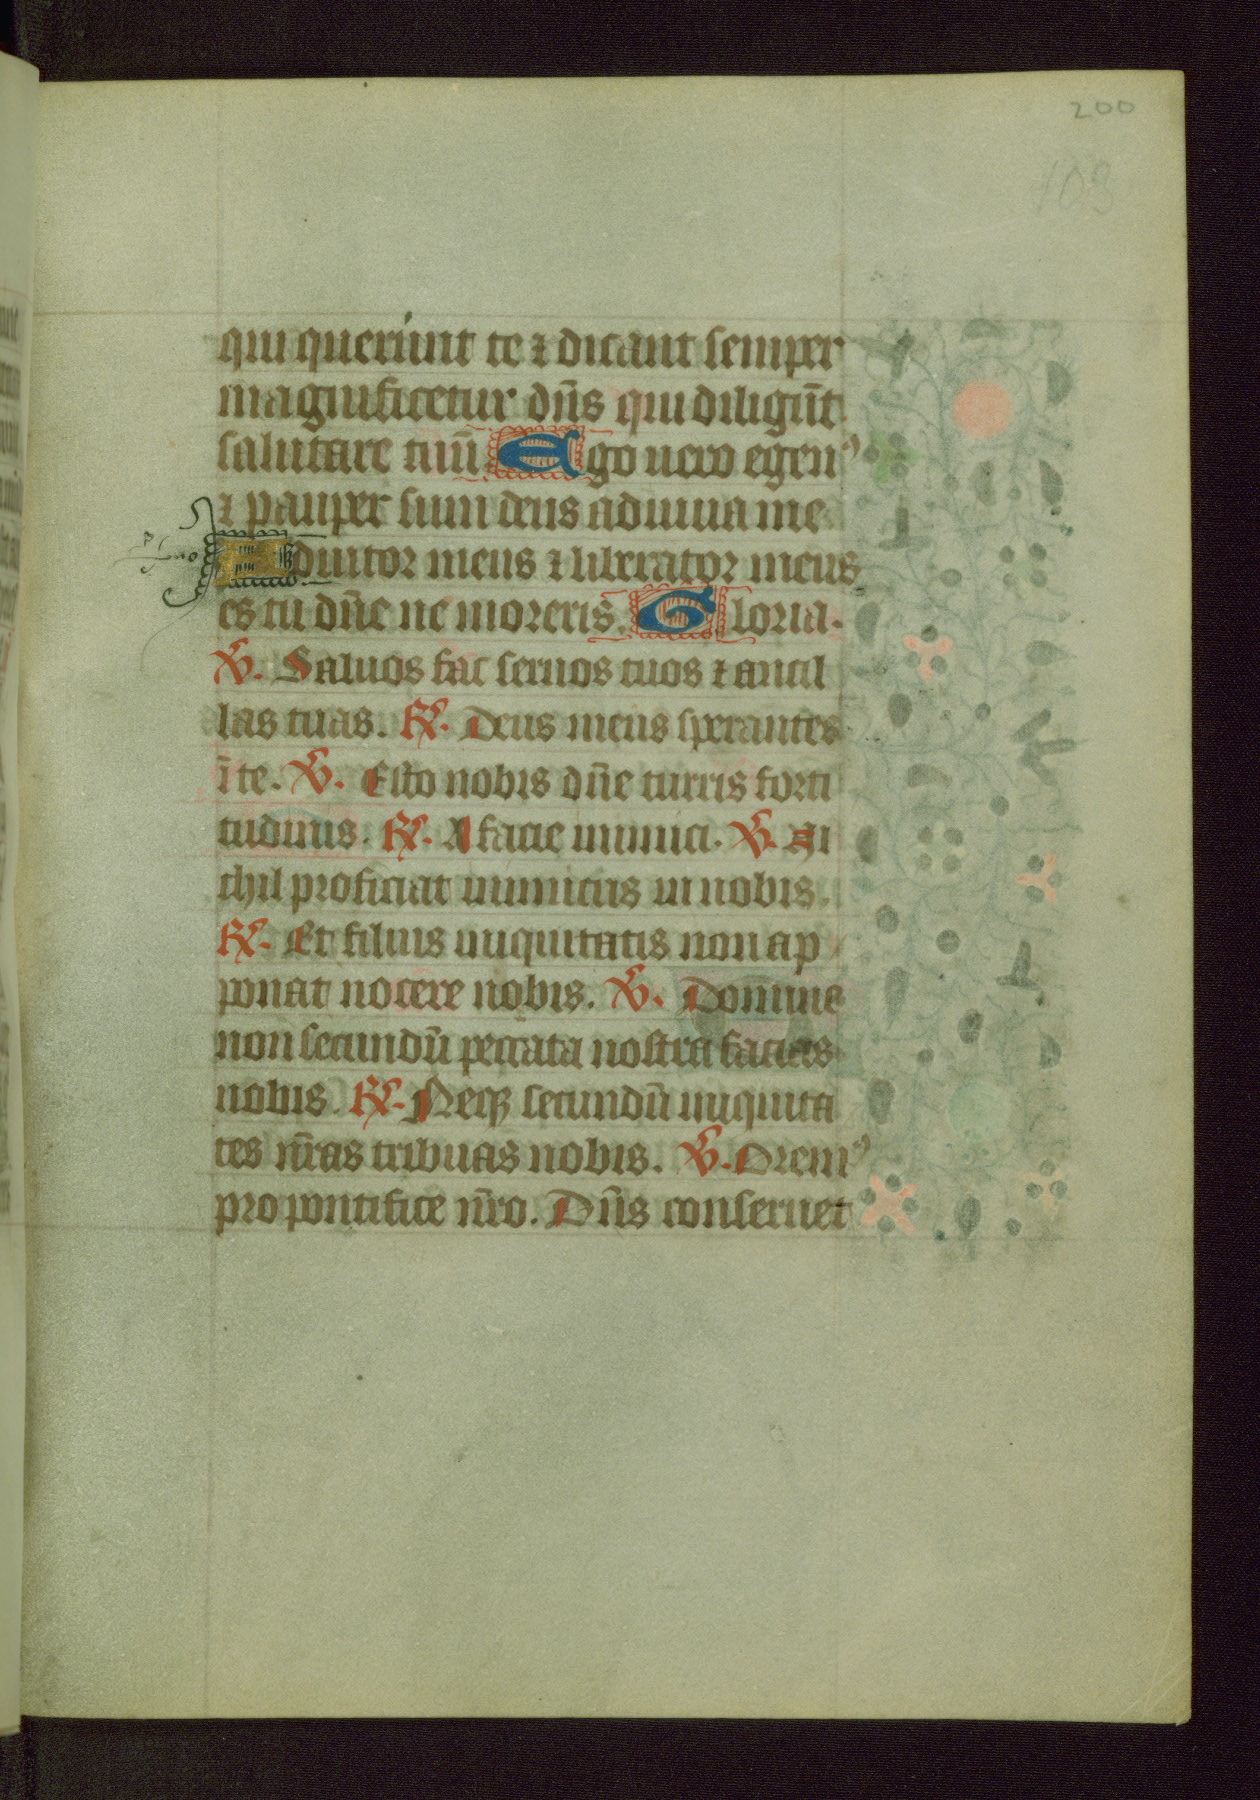 200
109
qui querunt te ⁊ dicant semper
magnificetur dn̄s qui diligūt
salutare tuū Ego uero egenꝰ
⁊ pauper sum deus adiuua me
Adiutor meus ⁊ liberator meus
es tu dn̄e ne moreris. Gloria.
℣. Saluos fac seruos tuos ⁊ ancil
las tuas. ℟. Deus meus sperantes
ī te. ℣. Esto nobis dn̄e turris forti
tudinis. ℟. A facie inimici. ℣. Ni
chil proficiat inimicus in nobis.
℟. Et filius iniquitatis non ap
ponat nocere nobis. ℣. Domine
non secundū peccata nostra facias
nobis. ℟. Neqꝫ secundū iniquita
tes nr̄as tribuas nobis. ℣. Oremꝰ
pro pontifice nr̄o. Dn̄s conseruet